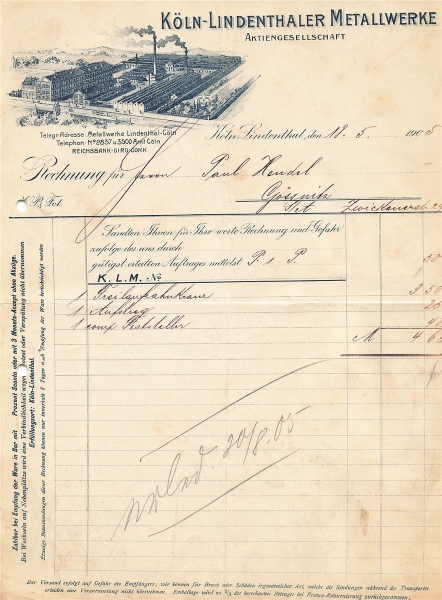 KÖLN-LINDENTHALER METALLWERKE
AKTIENGESELLSCHAFT
Telegr.-Adresse: Metallwerke Lindenthal-Cöln
Telephon: No 2837 u. 3500 Amt Cöln
REICHSBANK-GIRO-CONTO.
Köln-Lindenthal, den 18. 5. 1905
Rechnung für Herrn Paul Hendel
Gössnitz
K.B. Fol.
Sandten Ihnen für Ihre werte Rechnung und Gefahr
zufolge des uns durch
gütigst erteilten Auftrages mittelst P. s P.
K. L. M. No
1 Freilaufzahnkranz 3 50
1 Aufstieg
1 compl Feststeller
M
20/8.05
Zahlbar bei Empfang der Ware in Bar mit Prozent Sconto oder mit 3 Monats-Accept ohne Abzüge.
Bei Wechseln auf Nebenplätze wird eine Verbindlichkeit wegen Protest oder Verspätung nicht übernommen
Erfüllungsort: Köln-Lindenthal.
Etwaige Beanstandungen dieser Rechnung können nur innerhalb 8 Tagen nach Empfang der Ware berücksichtigt werden
Der Versand erfolgt auf Gefahr des Empfängers; wir können für Bruch oder Schäden irgendwelcher Art, welche die Sendungen während des Transportes
erleiden eine Verantwortung nicht übernehmen. Emballage wird zu 2/3 des berechneten Betrages bei Franco-Retournierung zurückgenommen.